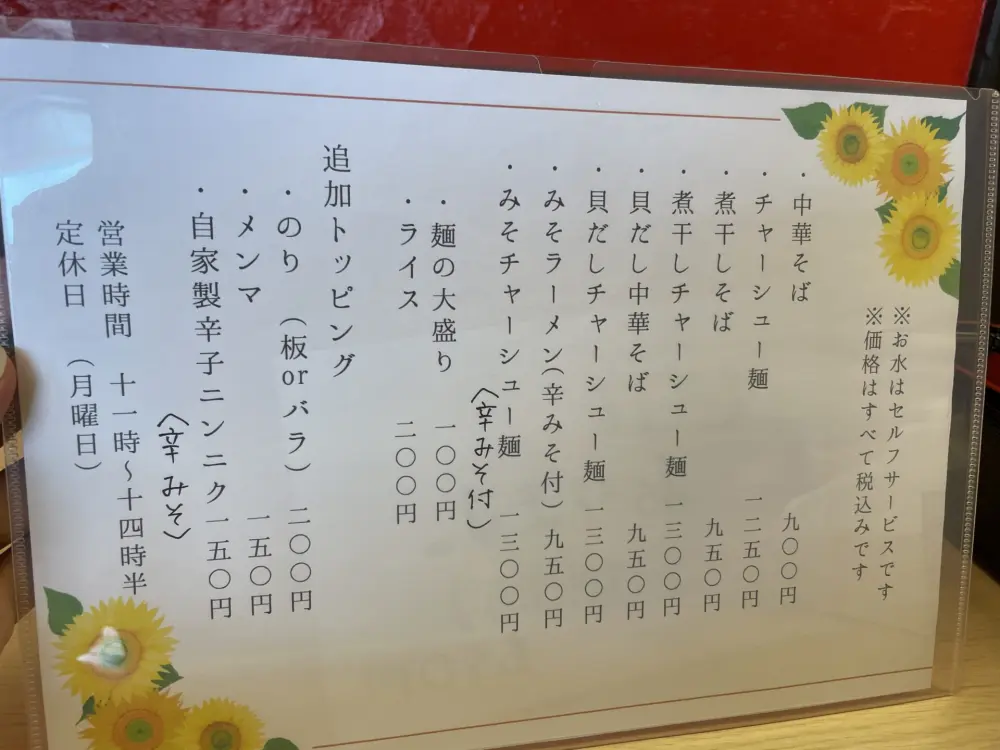 ※お水はセルフサービスです
※価格はすべて税込みです
・中華そば 九〇〇円
・チャーシュー麺 一二五〇円
・煮干しそば 九五〇円
・煮干しチャーシュー麺 一三〇〇円
・貝だし中華そば 九五〇円
・貝だしチャーシュー麺 一三〇〇円
・みそラーメン(辛みそ付) 九五〇円
・みそチャーシュー麺 一三〇〇円
(辛みそ付)
・麺の大盛り 一〇〇円
・ライス 二〇〇円
追加トッピング
・のり (板orバラ) 二〇〇円
・メンマ 一五〇円
・自家製辛子ニンニク 一五〇円
(辛みそ)
営業時間 十一時~十四時半
定休日 (月曜日)